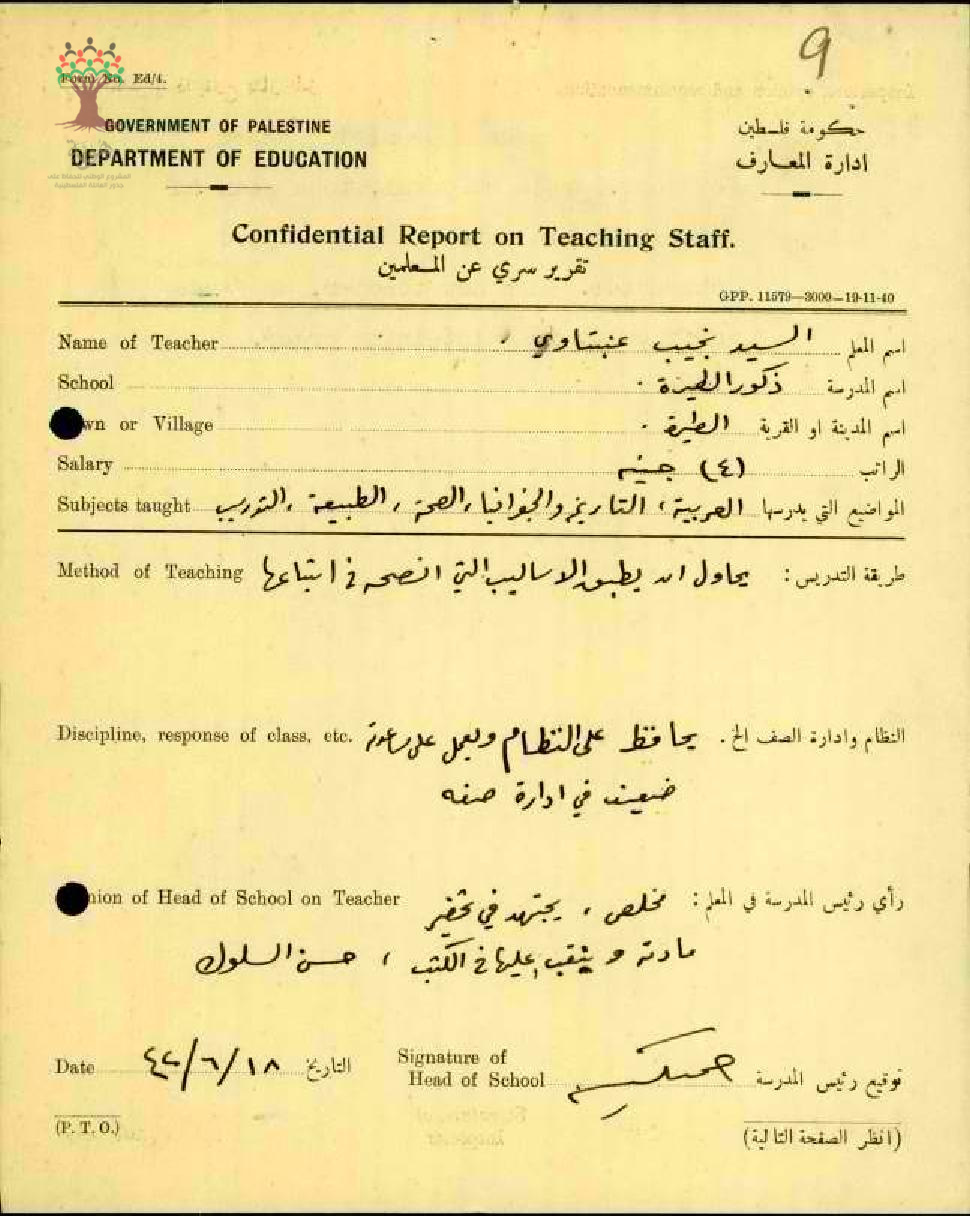 9
Form No. Ed/4.
GOVERNMENT OF PALESTINE
DEPARTMENT OF EDUCATION
حكومة فلسطين
ادارة المعارف
Confidential Report on Teaching Staff.
تقرير سري عن المعلمين
GPP. 11579—3000—19-11-40
Name of Teacher السيد نجيب عنبتاوي . اسم المعلم
School ذكور الطيرة . اسم المدرسة
wn or Village الطيرة . اسم المدينة او القرية
Salary (٤) جنيه الراتب
Subjects taught العربية ، التاريخ والجغرافيا ، الصحة ، الطبيعة ، التدريب المواضيع التي يدرسها
Method of Teaching يحاول ان يطبق الاساليب التي انصحه في اتباعها طريقة التدريس :
Discipline, response of class, etc. يحافظ على النظام ويعمل على النظام وادارة الصف الخ .
ضعيف في ادارة صفه
nion of Head of School on Teacher مخلص ، يجتهد في تحضير رأي رئيس المدرسة في المعلم :
مادته و عليها في الكتب ، حسن السلوك
Date ١٨/٦/٤٢ التاريخ
Signature of
Head of School توقيع رئيس المدرسة
(P. T. O.)
(انظر الصفحة التالية)